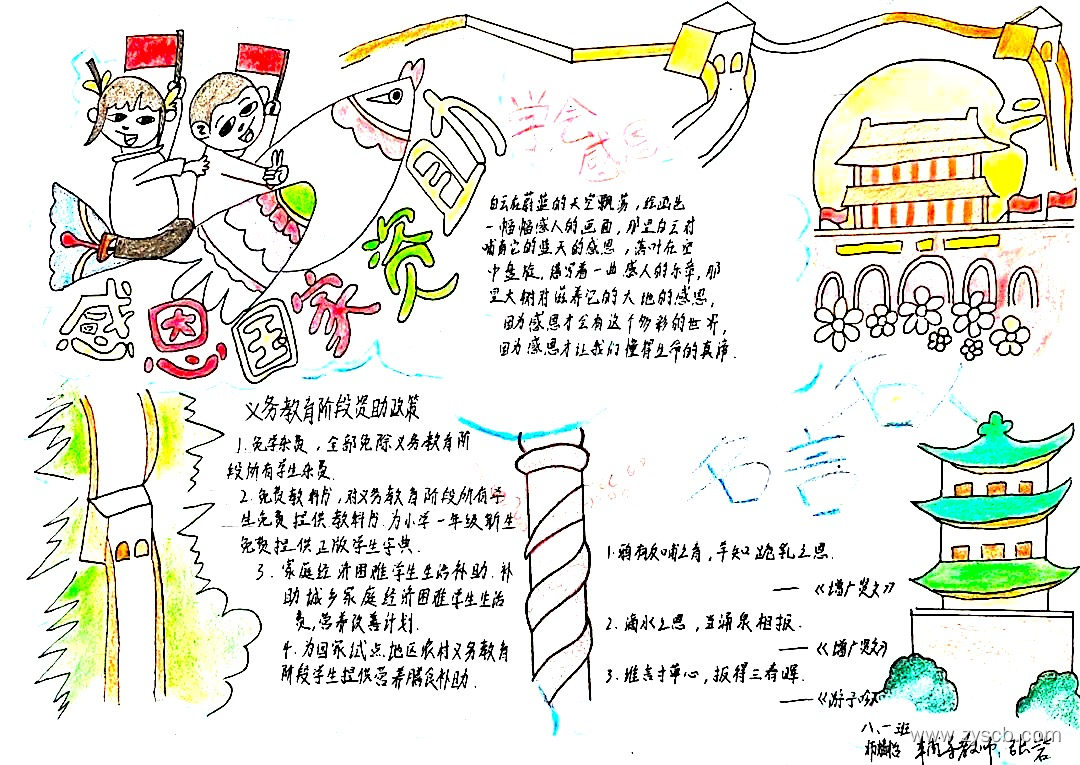 感恩国家资助
学会
感恩
白云在蔚蓝的天空飘荡，绘画出
一幅幅感人的画面，那是白云对
哺育它的蓝天的感恩，落叶在空
中盘旋，谱写着一曲感人的乐章，那
是大树对滋养它的大地的感恩，
因为感恩才会有这个多彩的世界，
因为感恩才让我们懂得生命的真谛.
义务教育阶段资助政策
1.免学杂费，全部免除义务教育阶
段所有学生杂费.
2.免费教科书，对义务教育阶段所有学
生免费提供教科书.为小学一年级新生
免费提供正版学生字典.
3.家庭经济困难学生生活补助.补
助城乡家庭经济困难学生生活
费,营养改善计划.
4.为国家试点地区农村义务教育
阶段学生提供营养膳食补助.
名言
1.鸦有反哺之孝，羊知跪乳之恩.
——《增广贤文》
2.滴水之恩，当涌泉相报.
——《增广贤文》
3.谁言寸草心，报得三春晖.
——《游子吟》
八.一班
辅导教师:张岩
www.zyscb.com